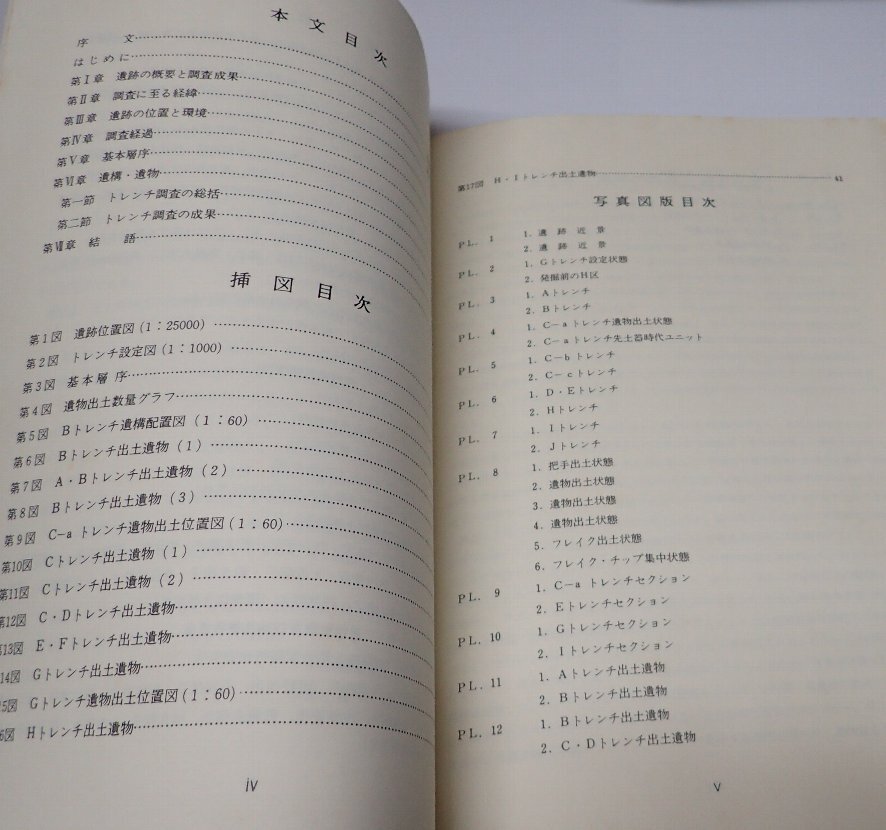 本文目次
序文
はじめに
第Ⅰ章 遺跡の概要と調査成果
第Ⅱ章 調査に至る経緯
第Ⅲ章 遺跡の位置と環境
第Ⅳ章 調査経過
第Ⅴ章 基本層序
第Ⅵ章 遺構・遺物
第一節 トレンチ調査の総括
第二節 トレンチ調査の成果
第Ⅶ章 結語
挿図目次
第1図 遺跡位置図(1:25000)
第2図 トレンチ設定図(1:1000)
第3図 基本層序
第4図 遺物出土数量グラフ
第5図 Bトレンチ遺構配置図(1:60)
第6図 Bトレンチ出土遺物(1)
第7図 A・Bトレンチ出土遺物(2)
第8図 Bトレンチ出土遺物(3)
第9図 C-aトレンチ遺物出土位置図(1:60)
第10図 Cトレンチ出土遺物(1)
第11図 Cトレンチ出土遺物(2)
第12図 C・Dトレンチ出土遺物
第13図 E・Fトレンチ出土遺物
14図 Gトレンチ出土遺物
5図 Gトレンチ遺物出土位置図(1:60)
6図 Hトレンチ出土遺物
iv
第17図 H・Iトレンチ出土遺物 41
写真図版目次
PL. 1 1. 遺跡近景
2. 遺跡近景
PL. 2 1. Gトレンチ設定状態
2. 発掘前のH区
PL. 3 1. Aトレンチ
2. Bトレンチ
PL. 4 1. C-aトレンチ遺物出土状態
2. C-aトレンチ先土器時代ユニット
PL. 5 1. C-bトレンチ
2. C-cトレンチ
PL. 6 1. D・Eトレンチ
2. Hトレンチ
PL. 7 1. Iトレンチ
2. Jトレンチ
PL. 8 1. 把手出土状態
2. 遺物出土状態
3. 遺物出土状態
4. 遺物出土状態
5. フレイク出土状態
6. フレイク・チップ集中状態
PL. 9 1. C-aトレンチセクション
2. Eトレンチセクション
PL. 10 1. Gトレンチセクション
2. Iトレンチセクション
PL. 11 1. Aトレンチ出土遺物
2. Bトレンチ出土遺物
PL. 12 1. Bトレンチ出土遺物
2. C・Dトレンチ出土遺物
v